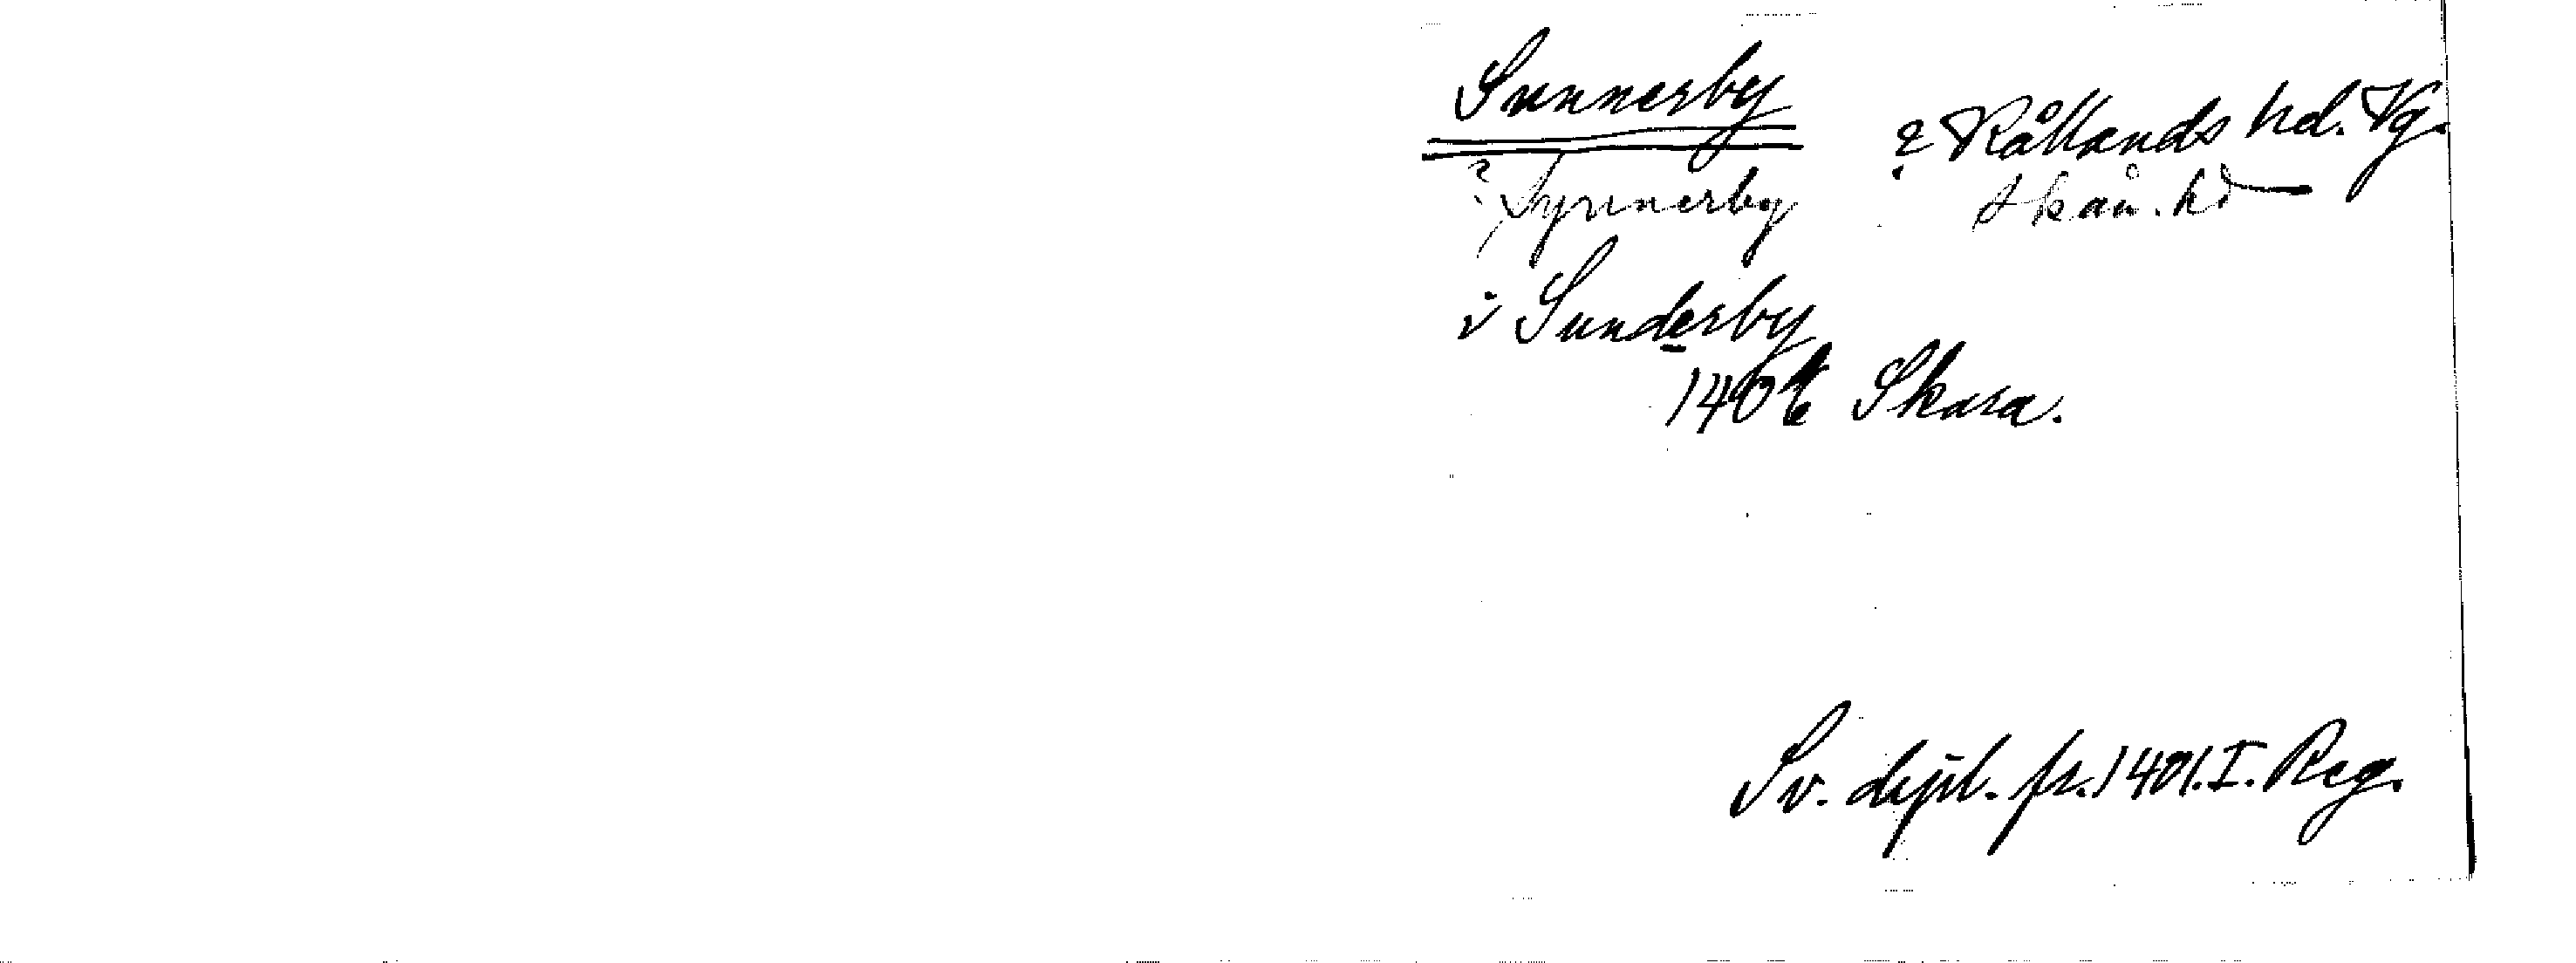 Sunnerby ? Kållands hd. Vg.
? Synnerby Skån. hd
i Sunderby
140 Skara.
Sv. dipl. fr. 1401. I. Reg.